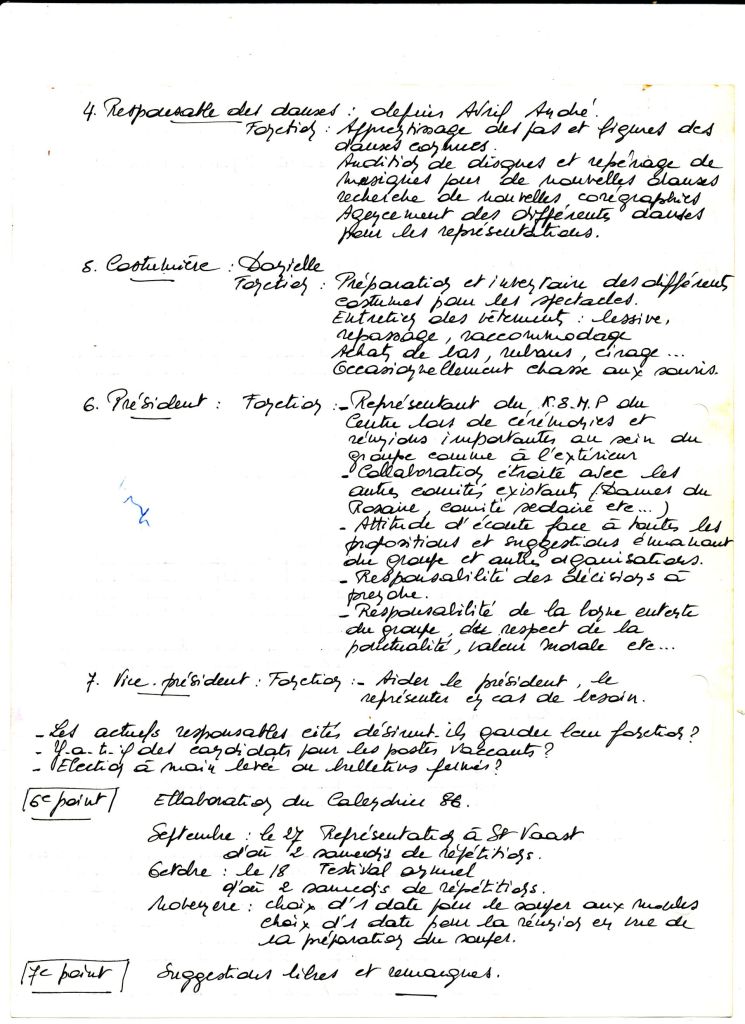 4. Responsable des danses : depuis Avril André.
Fonction : Apprentissage des pas et figures des
danses connues.
Audition de disques et repérage de
musiques pour de nouvelles danses
recherche de nouvelles corégraphies
Agencement des différentes danses
pour les représentations.
5. Costumière : Danielle
Fonction : Préparation et inventaire des différents
costumes pour les spectacles.
Entretien des vêtements : lessive,
repassage, raccommodage
Achats de bas, rubans, cirage ...
Occasionnellement chasse aux souris.
6. Président : Fonction : - Représentant du K.S.M.P du
Centre lors de cérémonies et
réunions importantes au sein du
groupe comme à l'extérieur
- Collaboration étroite avec les
autres comités existants (Dames du
Rosaire, comité scolaire etc ...)
- Attitude d'écoute face à toutes les
propositions et suggestions émanant
du groupe et autres organisations.
- Responsabilité des décisions à
prendre.
- Responsabilité de la bonne entente
du groupe, du respect de la
ponctualité, valeur morale etc ...
7. Vice-président : Fonction : - Aider le président, le
représenter en cas de besoin.
- Les actuels responsables cités désirent-ils garder leur fonction ?
- Y-a-t-il des candidats pour les postes vaccants ?
- Election à main levée ou bulletins fermés ?
6e point Ellaboration du Calendrier 86.
Septembre : le 27 Représentation à St Vaast
d'où 2 samedis de répétitions.
Octobre : le 18 Festival annuel
d'où 2 samedis de répétitions.
Novembre : choix d'1 date pour le souper aux moules
choix d'1 date pour la réunion en vue de
la préparation du souper.
7e point Suggestions libres et remarques.